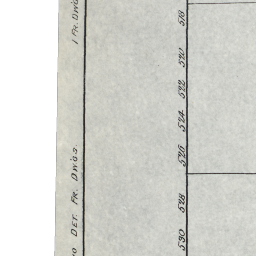 1 FR. DWG
DET. FR. DWGS.
518
520
522
524
526
528
530